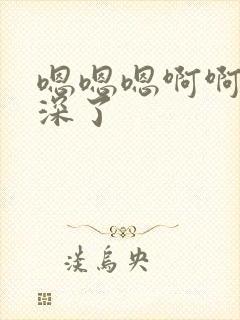 嗯嗯嗯啊啊
深了
淡乌央